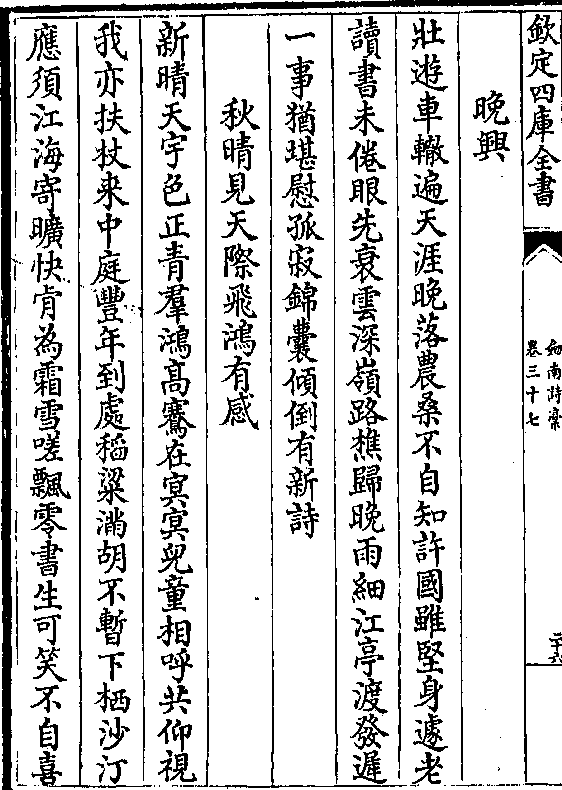 欽定四庫全書
劍南詩稾
卷三十七
二十六
晚興
壯遊車轍遍天涯晚落農桑不自知許國雖堅身遽老
讀書未倦眼先衰雲深嶺路樵歸晚雨細江亭渡發遲
一事猶堪慰孤寂錦囊傾倒有新詩
秋晴見天際飛鴻有感
新晴天宇色正青羣鴻高騫在冥冥兒童相呼共仰視
我亦扶杖来中庭豐年到處稻粱滿胡不暫下栖沙汀
應須江海寄曠快肯為霜雪嗟飄零書生可笑不自喜